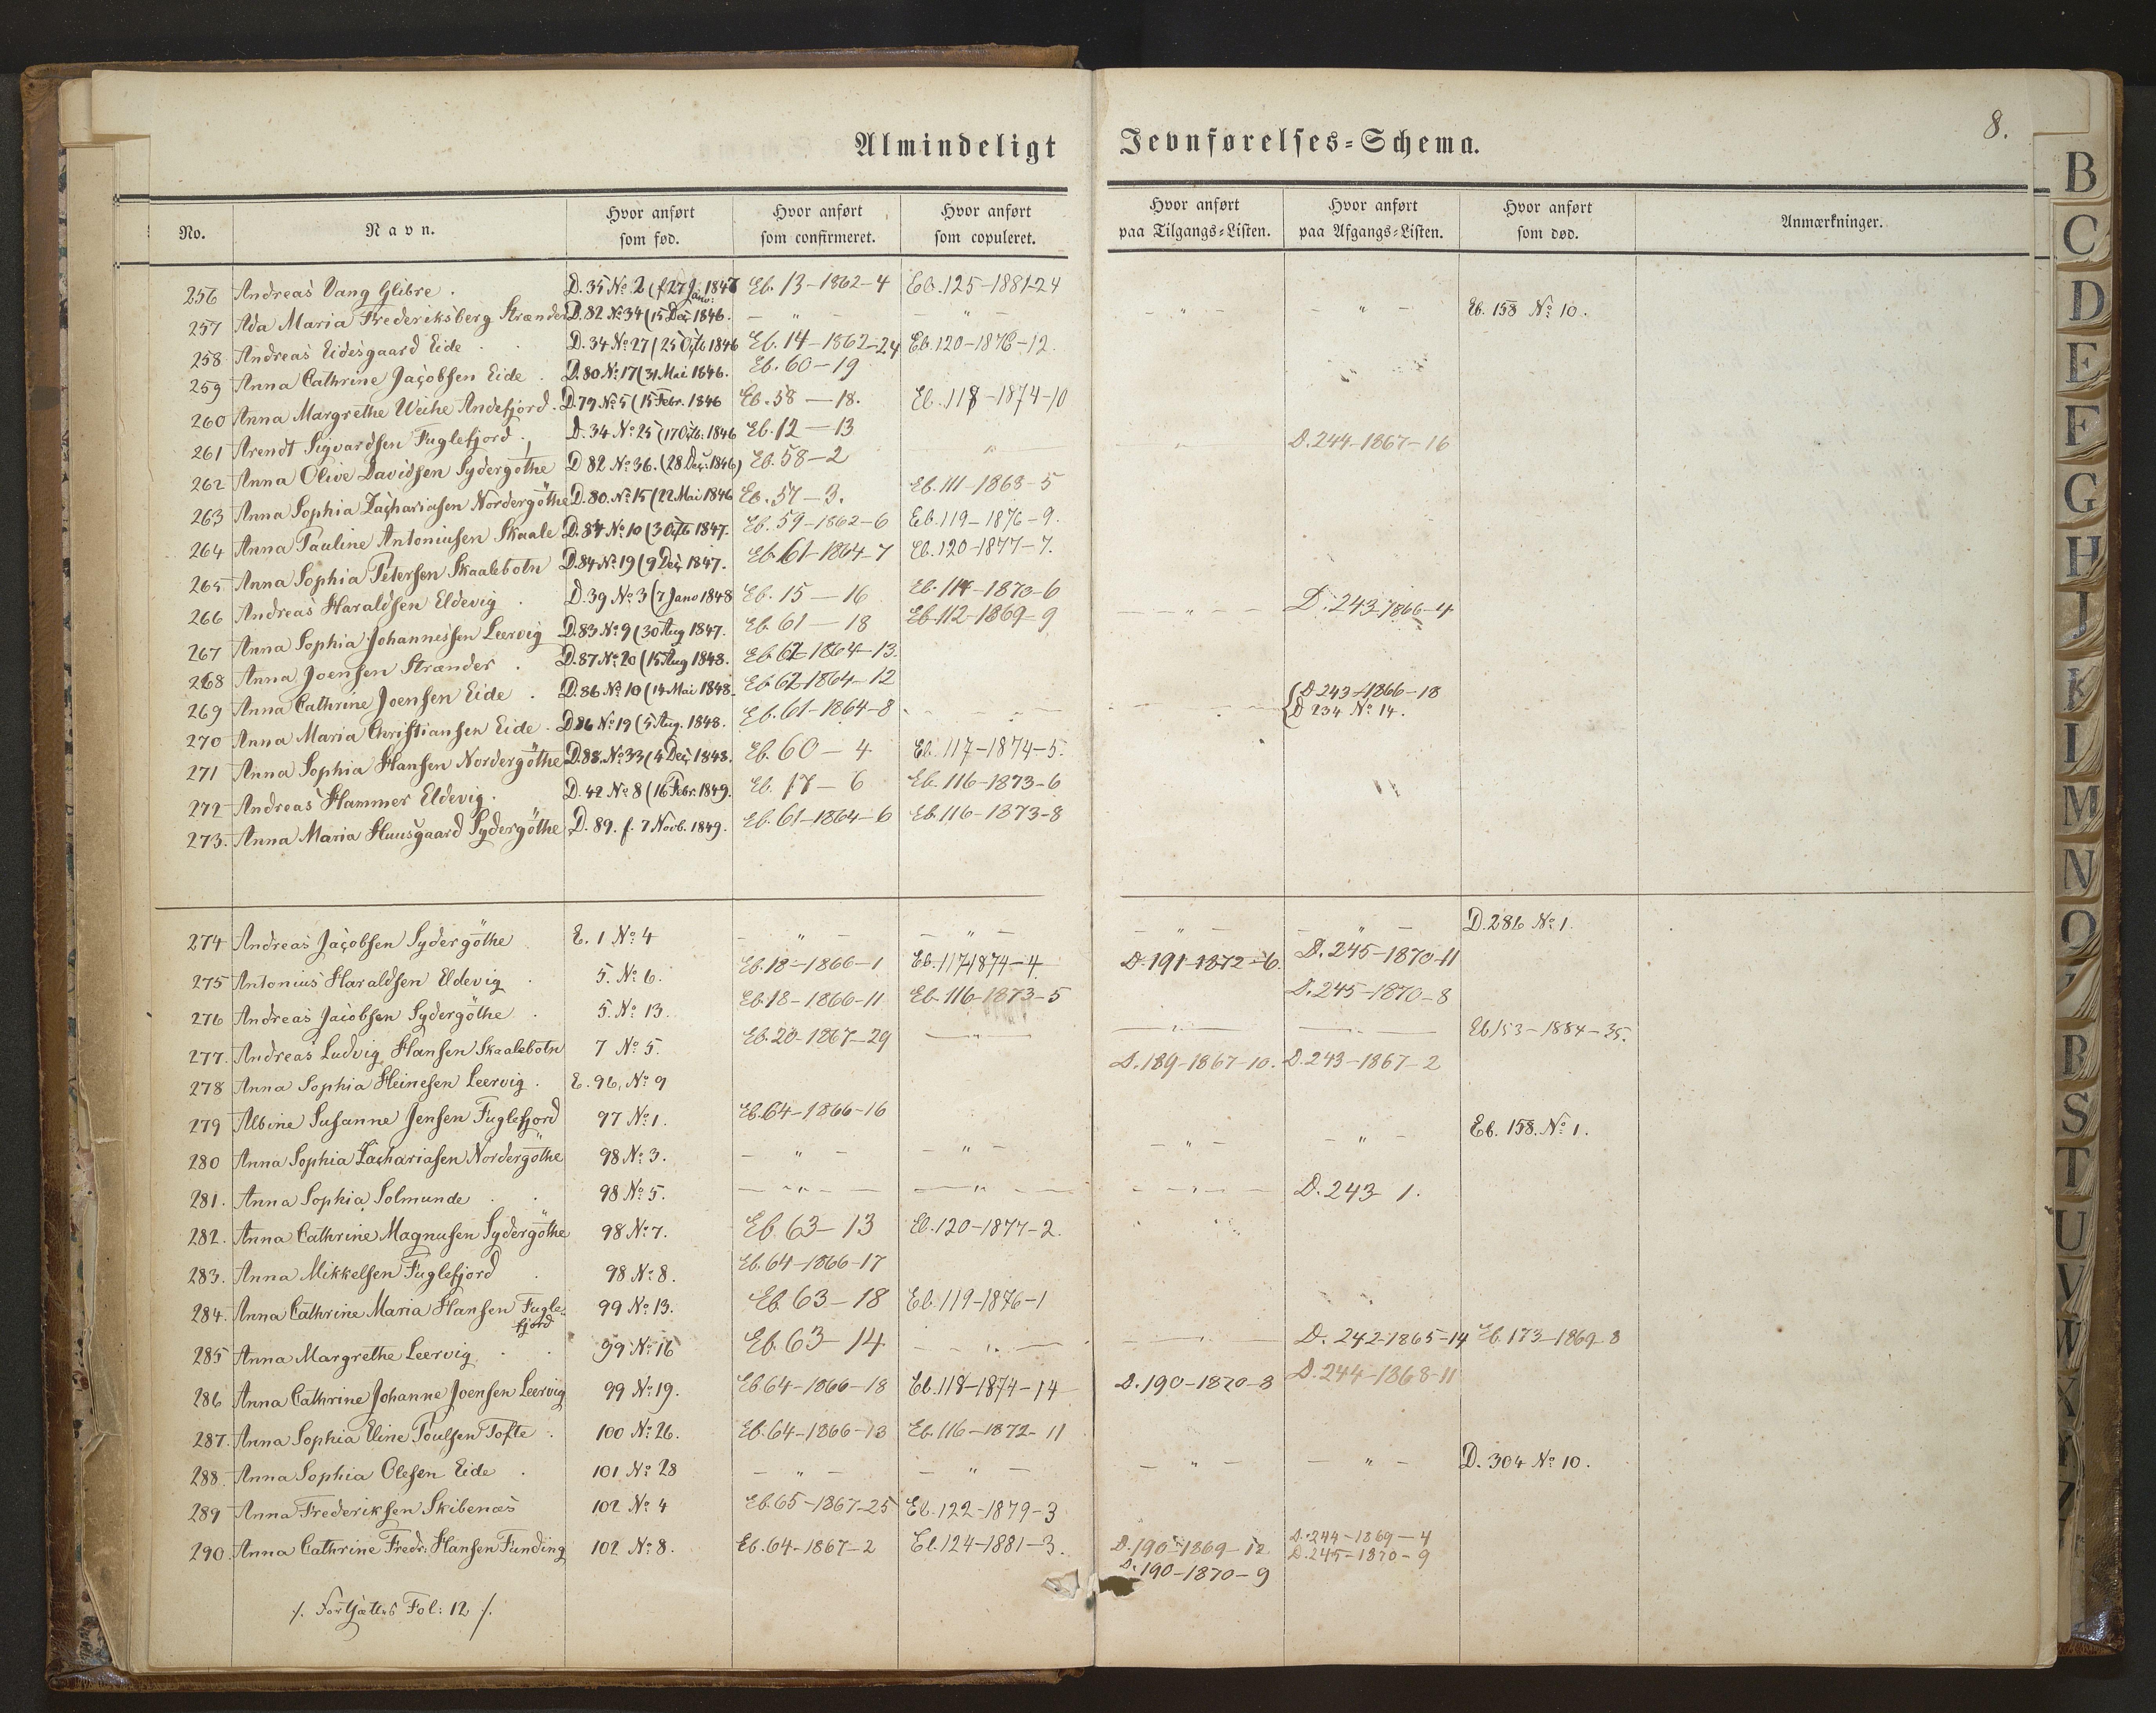 Almindeligt Jevnførelses=Schema.
8.
No. Navn. Hvor anført som fød. Hvor anført som confirmeret. Hvor anført som copuleret. Hvor anført paa Tilgangs=Listen. Hvor anført paa Afgangs=Listen. Hvor anført som død. Anmærkninger.
256 Andreas Vang Glibre . D. 35 No 2 (f 27 Janv: 1847 Eb. 13-1862-4 Eb. 125-1881-24
257 Ada Maria Frederiksberg Strænder D. 82 No 34 (15 Deç 1846. — " — — " — — " — — " — Eb. 158 No 10.
258 Andreas Eidesgaard Eide . D. 34 No 27 (25 Octb 1846 Eb. 14-1862-24 Eb. 120-1876-12.
259 Anna Cathrine Jacobsen Eide . D. 80 No 17 (31 Mai 1846. Eb. 60-19
260 Anna Margrethe Weihe Andefjord. D. 79 No 5 (15 Febr. 1846 Eb. 58-18. Eb. 118-1874-10
261 Arendt Sigvardsen Fuglefjord . D. 34 No 25 (17 Octb: 1846 Eb. 12-13 " D. 244-1867-16
262 Anna Olive Davidsen Sydergöthe D 82 No 36. (28 Deç. 1846) Eb. 58-2
263 Anna Sophia Zachariasen Nordergöthe D. 80. No 15 (22 Mai 1846 Eb. 57-3. Eb. 111-1868-5
264 Anna Pauline Antoniusen Skaale D. 84 No 10 (3 Octb 1847. Eb. 59-1862-6 Eb. 119-1876-9.
265 Anna Sophia Petersen Skaalebotn D. 84 No 19 (9 Deç 1847. Eb. 61-1864-7 Eb. 120-1877-7.
266 Andreas Haraldsen Eldevig . D. 39 No 3 (7 Janv 1848 Eb. 15-16 Eb. 114-1870-6 — " — D. 243-1866-4
267 Anna Sophia Johannessen Leervig D. 83 No 9 (30 Aug 1847. Eb. 61-18 Eb. 112-1869-9
268 Anna Joensen Strænder . D. 87 No 20 (15 Aug 1848. Eb. 62-1864-13.
269 Anna Cathrine Joensen Eide . D. 86 No 10 (14 Mai 1848. Eb. 62-1864-12
270 Anna Maria Christiansen Eide . D 86 No 19 (5 Aug. 1848. Eb. 61-1864-8 D 243-1866-18
D 234 No 14.
271 Anna Sophia Hansen Nordergöthe D. 88. No 33 (4 Deç 1848. Eb. 60-4 Eb. 117-1874-5.
272 Andreas Hammer Eldevig. D. 42 No 8 (16 Febr. 1849. Eb. 17-6 Eb. 116-1873-6
273. Anna Maria Huusgaard Sydergöthe D. 89. f. 7 Novb. 1849. Eb. 61-1864-6 Eb. 116-1873-8
274 Andreas Jacobsen Sydergöthe E. 1 No 4 — " — — " — — " — — " — D. 286 No 1.
275 Antonius Haraldsen Eldevig . 5. No 6. Eb. 18-1866-1 Eb. 117-1874-4 D. 191-1872-6. D. 245-1870-11
276 Andreas Jacobsen Sydergöthe . 5. No 13. Eb. 18-1866-11 Eb. 116-1873-5 D. 245-1870-8
277. Andreas Ludvig Hansen Skaalebotn 7 No 5. Eb. 20-1867-29 — " — — " — — " — Eb 153-1884-35.
278 Anna Sophia Heinesen Leervig . E. 96, No 9 D. 189-1867-10. D. 243-1867-2
279 Albine Susanne Jensen Fuglefjord 97 No 1. Eb. 64-1866-16
280 Anna Sophia Zachariasen Nordergöthe 98 No 3. — " — — " — — " — — " — Eb. 158. No 1.
281. Anna Sophia Solmunde . . 98 No 5. — " — — " — — " — D. 243-1.
282. Anna Cathrine Magnusen Sydergöthe 98 No 7. Eb. 63-13 Eb. 120-1877-2.
283. Anna Mikkelsen Fuglefjord . 98 No 8. Eb. 64-1866-17
284. Anna Cathrine Maria Hansen Fugle-
fjord 99 No 13. Eb. 63-18 Eb. 119-1876-1
285 Anna Margrethe Leervig . . 99 No 16 Eb. 63-14 — " — — " — D. 242-1865-14 Eb. 173-1869-8
286 Anna Cathrine Johanne Joensen Leervig 99 No 19. Eb 64-1866-18 Eb. 118-1874-14 D. 190-1870-8 D. 244-1868-11
287. Anna Sophia Eline Poulsen Tofte . 100 No 26. Eb. 64-1866-13 Eb. 116-1872-11
288. Anna Sophia Olesen Eide . 101 No 28 — " — — " — — " — — " — D. 304 No 10.
289 Anna Frederiksen Skibenæs 102 No 4 Eb. 65-1867-25 Eb. 122-1879-3
290. Anna Cathrine Fredr. Hansen Funding 102 No 8. Eb. 64-1867-2 Eb. 124-1881-3. D. 190-1869-12 D. 244-1869-4
D. 190-1870-9 D. 245-1870-9
/. Fortsættes Fol: 12 /.
B
C
D
E
F
G
H
J
K
L
M
N
O
R
S
T
U
V
W
X
Y
Z